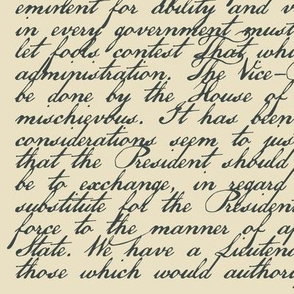 eminent for ability and v
in every government must
let fools contest That whi
administration. The Vice-
be done by the House of
mischievous. It has been
considerations seem to just
that the President should
be to exchange, in regard
substitute for the President
force to the manner of ap
State. We have a Lieutena
those which would authori